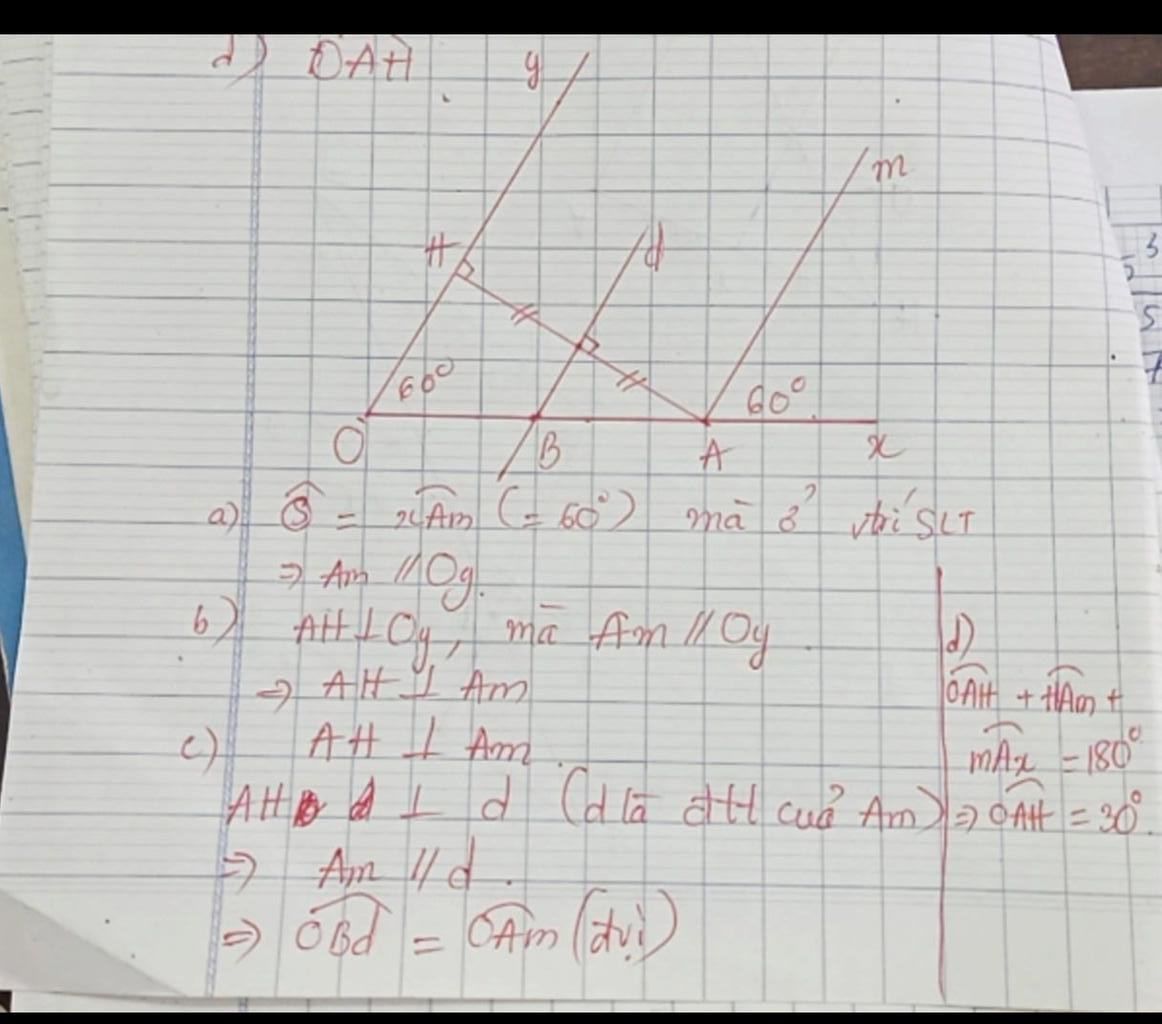 d) OAH
y
m
H
d
60°
60°
O
B
A
x
a) Ô = xAm (= 60°) mà ở vtrí SLT
⇒ Am // Oy.
b) AH ⊥ Oy, mà Am // Oy.
⇒ AH ⊥ Am
c) AH ⊥ Am.
AH ⊥ d (d là đtt của Am)
⇒ Am // d.
⇒ OBd = OAm (đvị)
d)
OAH + HAm +
mAx = 180°
⇒ OAH = 30°.
3
5